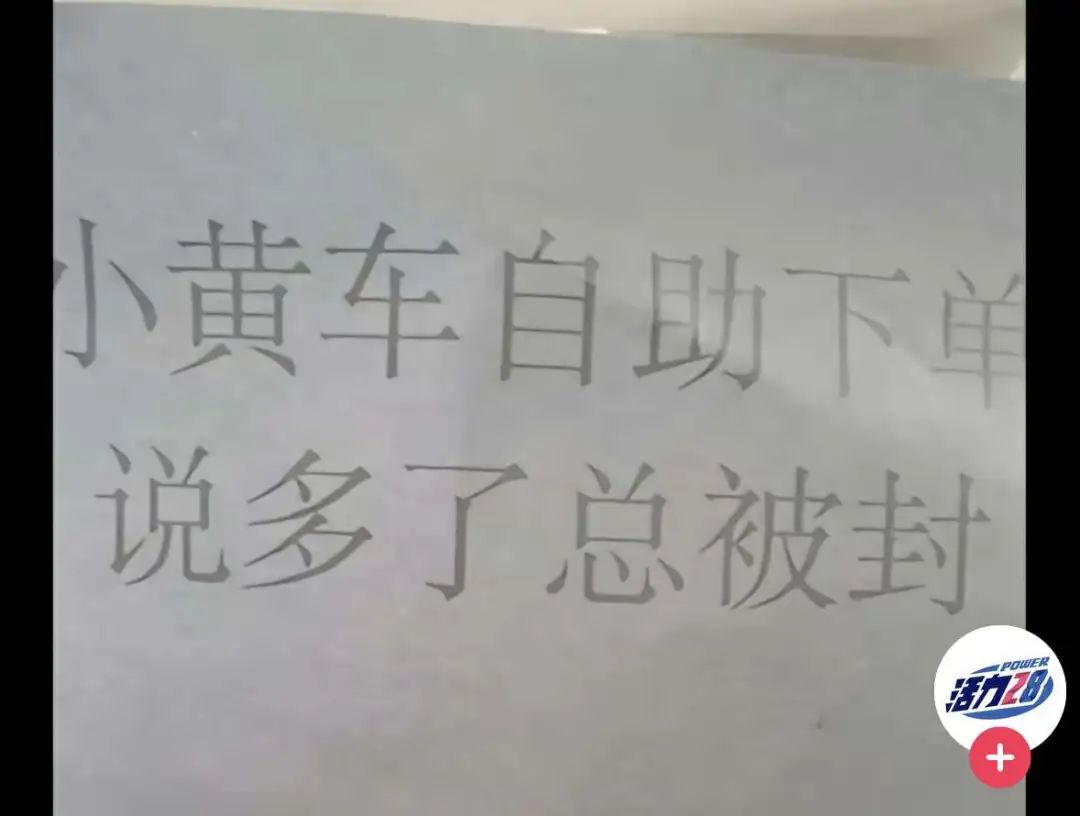 小黄车自助下单
说多了总被封
POWER
活力28